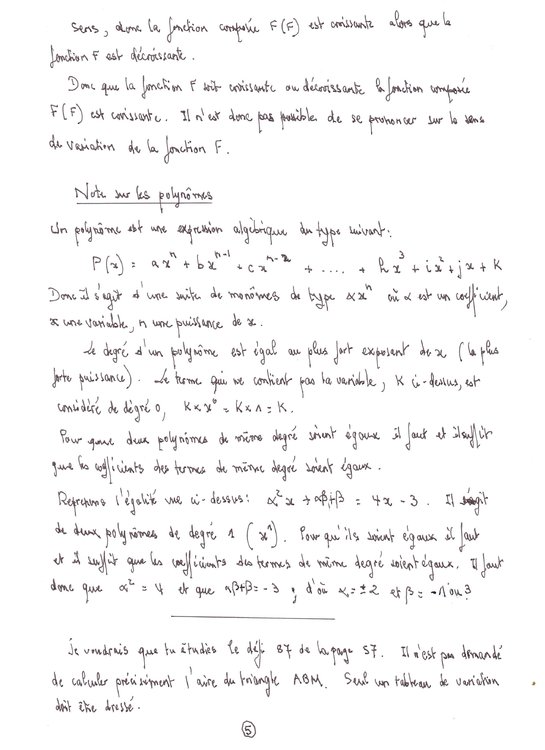 sens, donc la fonction composée F(F) est croissante alors que la
fonction F est décroissante.
Donc que la fonction F soit croissante ou décroissante la fonction composée
F(F) est croissante. Il n'est donc pas possible de se prononcer sur le sens
de variation de la fonction F.
Note sur les polynômes
Un polynôme est une expression algébrique du type suivant:
P(x) = ax^n + bx^{n-1} + cx^{n-2} + .... + hx^3 + ix^2 + jx + K
Donc il s'agit d'une suite de monômes de type αx^n où α est un coefficient,
x une variable, n une puissance de x.
Le degré d'un polynôme est égal au plus fort exposant de x (la plus
forte puissance). Le terme qui ne contient pas la variable, K ci-dessus, est
considéré de dégré 0, K×x^0 = K×1 = K.
Pour que deux polynômes de même degré soient égaux il faut et il suffit
que les coefficients des termes de même degré soient égaux.
Reprenons l'égalité vue ci-dessus: α²x + αβ+β = 4x - 3. Il s'agit
de deux polynômes de degré 1 (x^1). Pour qu'ils soient égaux il faut
et il suffit que les coefficients des termes de même degré soient égaux. Il faut
donc que α² = 4 et que αβ+β = -3 ; d'où α = ±2 et β = -1 ou 3
Je voudrais que tu étudies le défi 87 de la page 57. Il n'est pas demandé
de calculer précisément l'aire du triangle ABM. Seul un tableau de variation
doit être dressé.
5